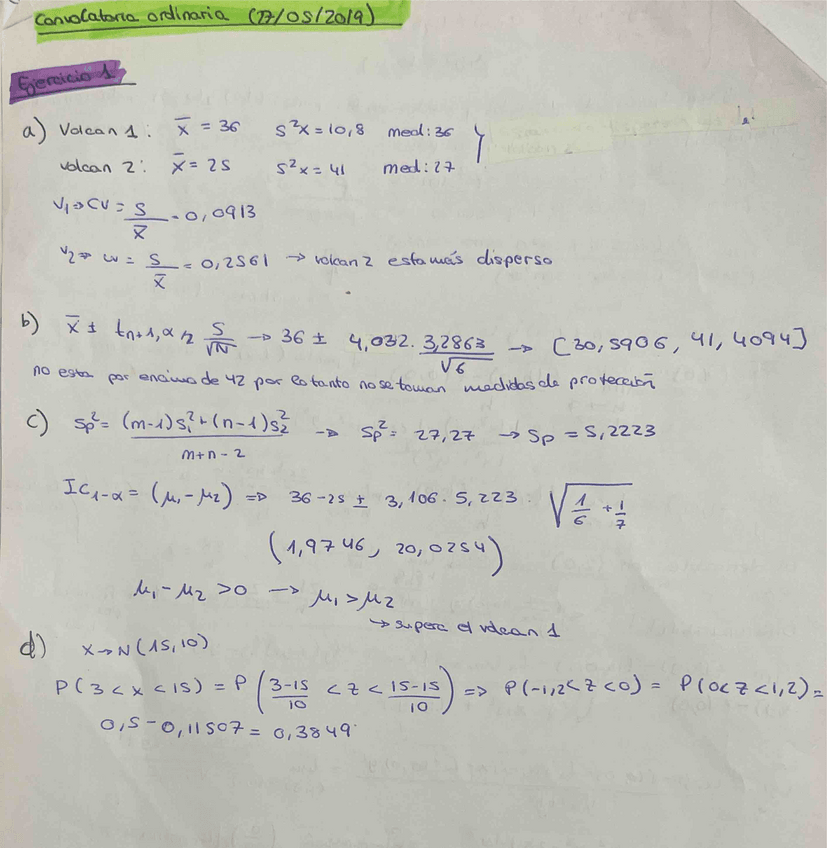 Convocatoria ordinaria (27/05/2019)
Ejercicio 1
a) Volcan 1: x̄ = 36 s²x = 10,8 med: 36
volcan 2: x̄ = 25 s²x = 41 med: 27
V₁ ⇒ CV = S/x̄ = 0,0913
V₂ ⇒ CV = S/x̄ = 0,2561 → volcan 2 esta más disperso
b) x̄ ± tn+1,α/2 S/√N → 36 ± 4,032 · 3,2863/√6 → [30,5906, 41,4094]
no esta por encima de 42 por lo tanto no se toman medidas de protección
c) Sp² = (m-1)S₁² + (n-1)S₂² / m+n-2 → Sp² = 27,27 → Sp = 5,2223
IC₁₋α = (μ₁ - μ₂) ⇒ 36-25 ± 3,106 · 5,223 · √(1/6 + 1/7)
(1,9746, 20,0254)
μ₁ - μ₂ > 0 → μ₁ > μ₂
→ supera el volcan 1
d) X → N(15,10)
P(3 < x < 15) = P(3-15/10 < z < 15-15/10) ⇒ P(-1,2 < z < 0) = P(0 < z < 1,2) =
0,5 - 0,11507 = 0,3849